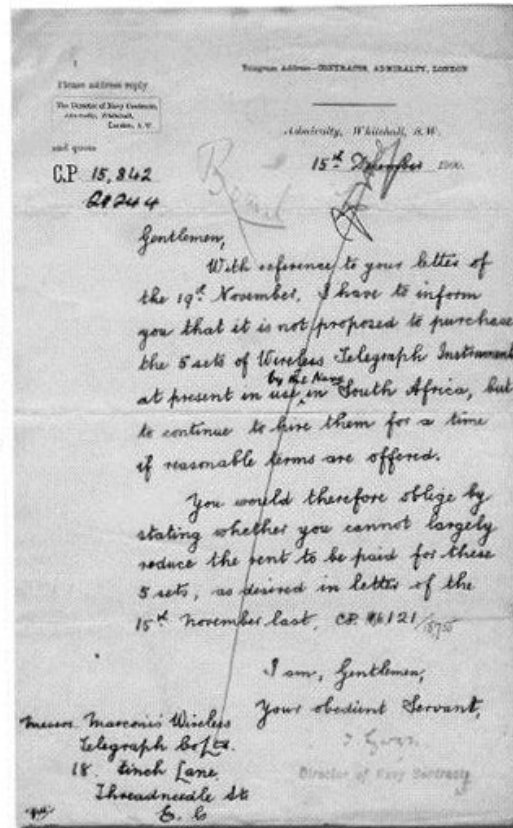 Telegram Address—CONTRACTS, ADMIRALTY, LONDON
Please address reply
The Director of Navy Contracts,
Admiralty, Whitehall,
London, S.W.
and quote
C.P. 15,842
Admiralty, Whitehall, S.W.
15th December 1900.
Gentlemen,
With reference to your letter of
the 19th November, I have to inform
you that it is not proposed to purchase
the 5 sets of Wireless Telegraph Instrument
by the Navy
at present in use in South Africa, but
to continue to hire them for a time
if reasonable terms are offered.
You would therefore oblige by
stating whether you cannot largely
reduce the rent to be paid for these
5 sets, as desired in letter of the
15th November last, CP.
I am, Gentlemen,
Your obedient Servant,
Director of Navy Contracts
Messrs. Marconis' Wireless
Telegraph Co Ltd.
18. Finch Lane,
Threadneedle St.
E. C